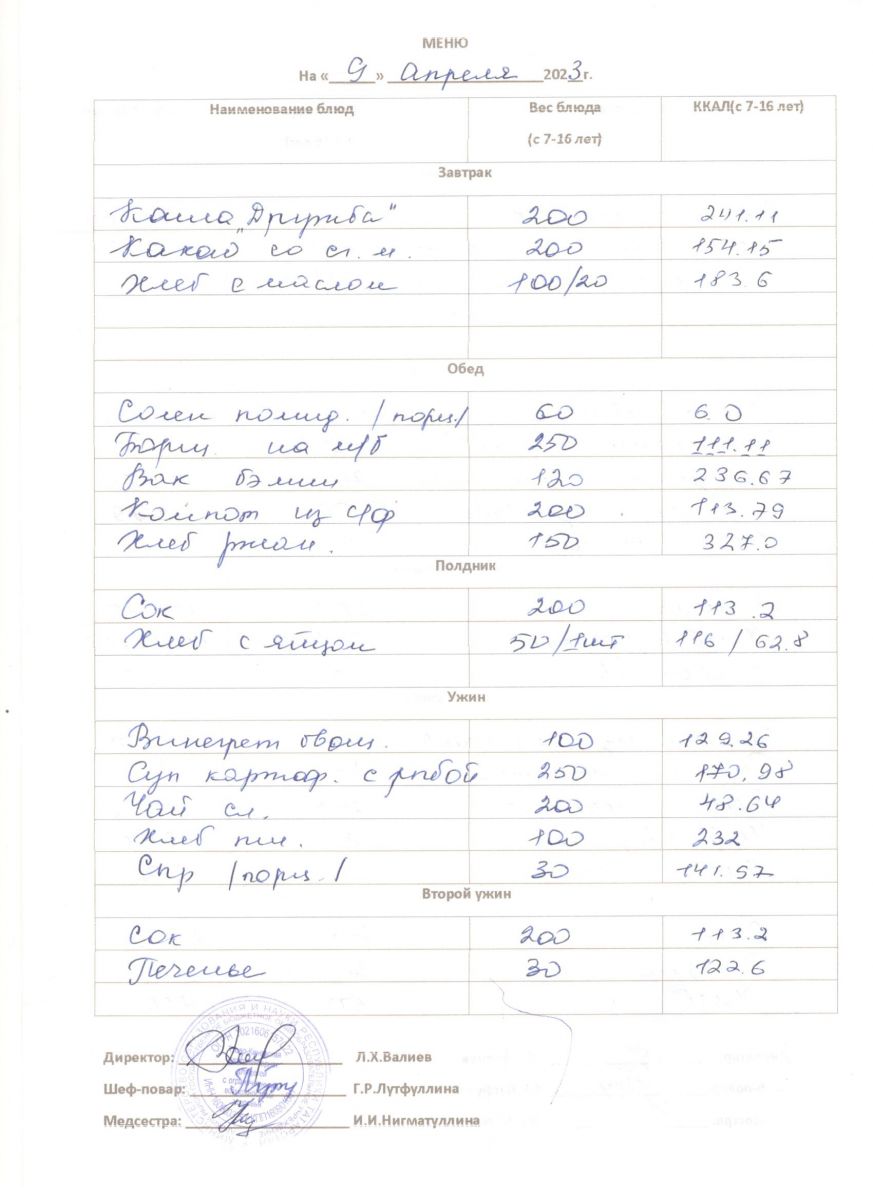 МЕНЮ
На « 9 » Апреля 2023г.
Наименование блюд Вес блюда (с 7-16 лет) ККАЛ(с 7-16 лет)
Завтрак
Каша „Дружба" 200 241.11
Какао со сг. м. 200 154.15
Хлеб с маслом 100/20 183.6
Обед
Солен помид. /порц./ 60 6.0
Борщ на м/б 250 111.11
Вак бэлиш 120 236.67
Компот из с/ф 200 113.79
Хлеб ржан. 150 327.0
Полдник
Сок 200 113.2
Хлеб с яйцом 50/1шт 116 / 62.8
Ужин
Винегрет овощ. 100 129.26
Суп картоф. с рыбой 250 170,98
Чай сл. 200 48.64
Хлеб пш. 100 232
Сыр /порц./ 30 141.57
Второй ужин
Сок 200 113.2
Печенье 30 122.6
Директор: Л.Х.Валиев
Шеф-повар: Г.Р.Лутфуллина
Медсестра: И.И.Нигматуллина